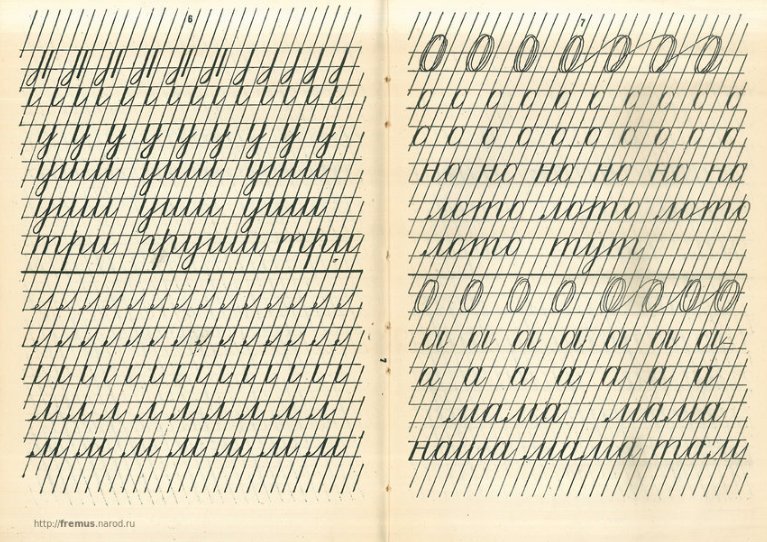 6
у у у у у у у у у
уши уши уши
уши уши уши
три груши три
л л л л л л л л л
м м м м м м м
7
О О О О О О О
о о о о о о о о о о
о о о о о о о о о о
но но но но но но
лото лото лото
лото тут
О О О О О О О О
а а а а а а а
а а а а а а а
мама мама
наша мама там
http://fremus.narod.ru